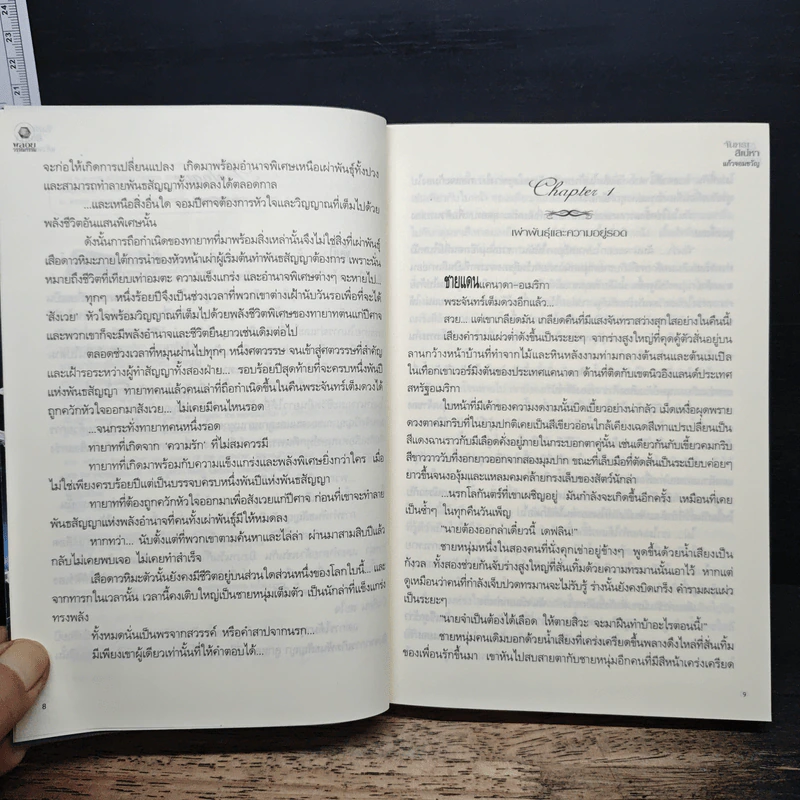 24
23
22
21
จะก่อให้เกิดการเปลี่ยนแปลง เกิดมาพร้อมอำนาจพิเศษเหนือเผ่าพันธุ์ทั้งปวง
และสามารถทำลายพันธสัญญาทั้งหมดลงได้ตลอดกาล
...และเหนือสิ่งอื่นใด จอมปีศาจต้องการหัวใจและวิญญาณที่เต็มไปด้วย
พลังชีวิตอันแสนพิเศษนั้น
ดังนั้นการถือกำเนิดของทายาทที่มาพร้อมสิ่งเหล่านั้นจึงไม่ใช่สิ่งที่เผ่าพันธุ์
เสือดาวหิมะภายใต้การนำของหัวหน้าเผ่าผู้เริ่มต้นทำพันธสัญญาต้องการ เพราะนั่น
หมายถึงชีวิตที่เทียบเท่าอมตะ ความแข็งแกร่ง และอำนาจพิเศษต่างๆ จะหายไป...
ทุกๆ หนึ่งร้อยปีจึงเป็นช่วงเวลาที่พวกเขาต่างเฝ้านับวันรอเพื่อที่จะได้
'สังเวย' หัวใจพร้อมวิญญาณที่เต็มไปด้วยพลังชีวิตพิเศษของทายาทตนแก่ปีศาจ
และพวกเขาก็จะมีพลังอำนาจและชีวิตยืนยาวเช่นเดิมต่อไป
ตลอดช่วงเวลาที่หมุนผ่านไปทุกๆ หนึ่งศตวรรษ จนเข้าสู่ศตวรรษที่สำคัญ
และเฝ้ารอระหว่างผู้ทำสัญญาทั้งสองฝ่าย... รอบร้อยปีสุดท้ายที่จะครบหนึ่งพันปี
แห่งพันธสัญญา ทายาทคนแล้วคนเล่าที่ถือกำเนิดขึ้นในคืนพระจันทร์เต็มดวงได้
ถูกควักหัวใจออกมาสังเวย... ไม่เคยมีคนไหนรอด
...จนกระทั่งทายาทคนหนึ่งรอด
ทายาทที่เกิดจาก 'ความรัก' ที่ไม่สมควรมี
ทายาทที่เกิดมาพร้อมกับความแข็งแกร่งและพลังพิเศษยิ่งกว่าใคร เมื่อ
ไม่ใช่เพียงครบร้อยปีแต่เป็นบรรจบครบหนึ่งพันปีแห่งพันธสัญญา
ทายาทที่ต้องถูกควักหัวใจออกมาเพื่อสังเวยแก่ปีศาจ ก่อนที่เขาจะทำลาย
พันธสัญญาแห่งพลังอำนาจที่คนทั้งเผ่าพันธุ์มีให้หมดลง
หากทว่า... นับตั้งแต่ที่พวกเขาตามค้นหาและไล่ล่า ผ่านมาสามสิบปีแล้ว
กลับไม่เคยพบเจอ ไม่เคยทำสำเร็จ
เสือดาวหิมะตัวนั้นยังคงมีชีวิตอยู่บนส่วนใดส่วนหนึ่งของโลกใบนี้... และ
จากทารกในเวลานั้น เวลานี้คงเติบใหญ่เป็นชายหนุ่มเต็มตัว เป็นนักล่าที่แข็งแกร่ง
ทรงพลัง
ทั้งหมดนั่นเป็นพรจากสวรรค์ หรือคำสาปจากนรก...
มีเพียงเขาผู้เดียวเท่านั้นที่ให้คำตอบได้...
8
จันทรา
สิเน่หา
แก้วจอมขวัญ
Chapter 1
เผ่าพันธุ์และความอยู่รอด
ชายแดนแคนาดา-อเมริกา
พระจันทร์เต็มดวงอีกแล้ว...
สวย... แต่เขาเกลียดมัน เกลียดคืนที่มีแสงจันทราสว่างสุกใสอย่างในคืนนี้!
เสียงคำรามแผ่วต่ำดังขึ้นเป็นระยะๆ จากร่างสูงใหญ่ที่คุดคู้ตัวสั่นอยู่บน
ลานกว้างหน้าบ้านที่ทำจากไม้และหินหลังงามท่ามกลางต้นสนและต้นเมเปิล
ในเทือกเขาเวอร์มิ่งตันของประเทศแคนาดา ด้านที่ติดกับเขตนิวอิงแลนด์ประเทศ
สหรัฐอเมริกา
ใบหน้าที่มีเค้าของความงดงามนั้นบิดเบี้ยวอย่างน่ากลัว เม็ดเหงื่อผุดพราย
ดวงตาคมกริบที่ในยามปกติเคยเป็นสีเขียวอ่อนใกล้เคียงเฉดสีเทาแปรเปลี่ยนเป็น
สีแดงฉานราวกับมีเลือดคั่งอยู่ภายในกระบอกตาคู่นั้น เช่นเดียวกันกับเขี้ยวคมกริบ
สีขาววาววับที่งอกยาวออกจากสองมุมปาก ขณะที่เล็บมือที่ตัดสั้นเป็นระเบียบค่อยๆ
ยาวขึ้นจนงองุ้มและแหลมคมคล้ายกรงเล็บของสัตว์นักล่า
...นรกโลกันตร์ที่เขาเผชิญอยู่ มันกำลังจะเกิดขึ้นอีกครั้ง เหมือนที่เคย
เป็นซ้ำๆ ในทุกคืนวันเพ็ญ
"นายต้องออกล่าเดี๋ยวนี้ เดฟลิน!"
ชายหนุ่มหนึ่งในสองคนที่นั่งคุกเข่าอยู่ข้างๆ พูดขึ้นด้วยน้ำเสียงเป็น
กังวล ทั้งสองช่วยกันจับร่างสูงใหญ่ที่สั่นเทิ้มด้วยความทรมานนั้นเอาไว้ หากแต่
ดูเหมือนว่าคนที่กำลังเจ็บปวดทรมานจะไม่รับรู้ ร่างนั้นยังคงบิดเกร็ง คำรามผะแผ่ว
เป็นระยะๆ
"นายจำเป็นต้องได้เลือด ให้ตายสิวะ จะมาฝืนทำบ้าอะไรตอนนี้!"
ชายหนุ่มคนเดิมบอกด้วยน้ำเสียงที่เคร่งเครียดขึ้นพลางดึงไหล่ที่สั่นเทิ้ม
ของเพื่อนรักขึ้นมา เขาหันไปสบสายตากับชายหนุ่มอีกคนที่มีสีหน้าเคร่งเครียด
9